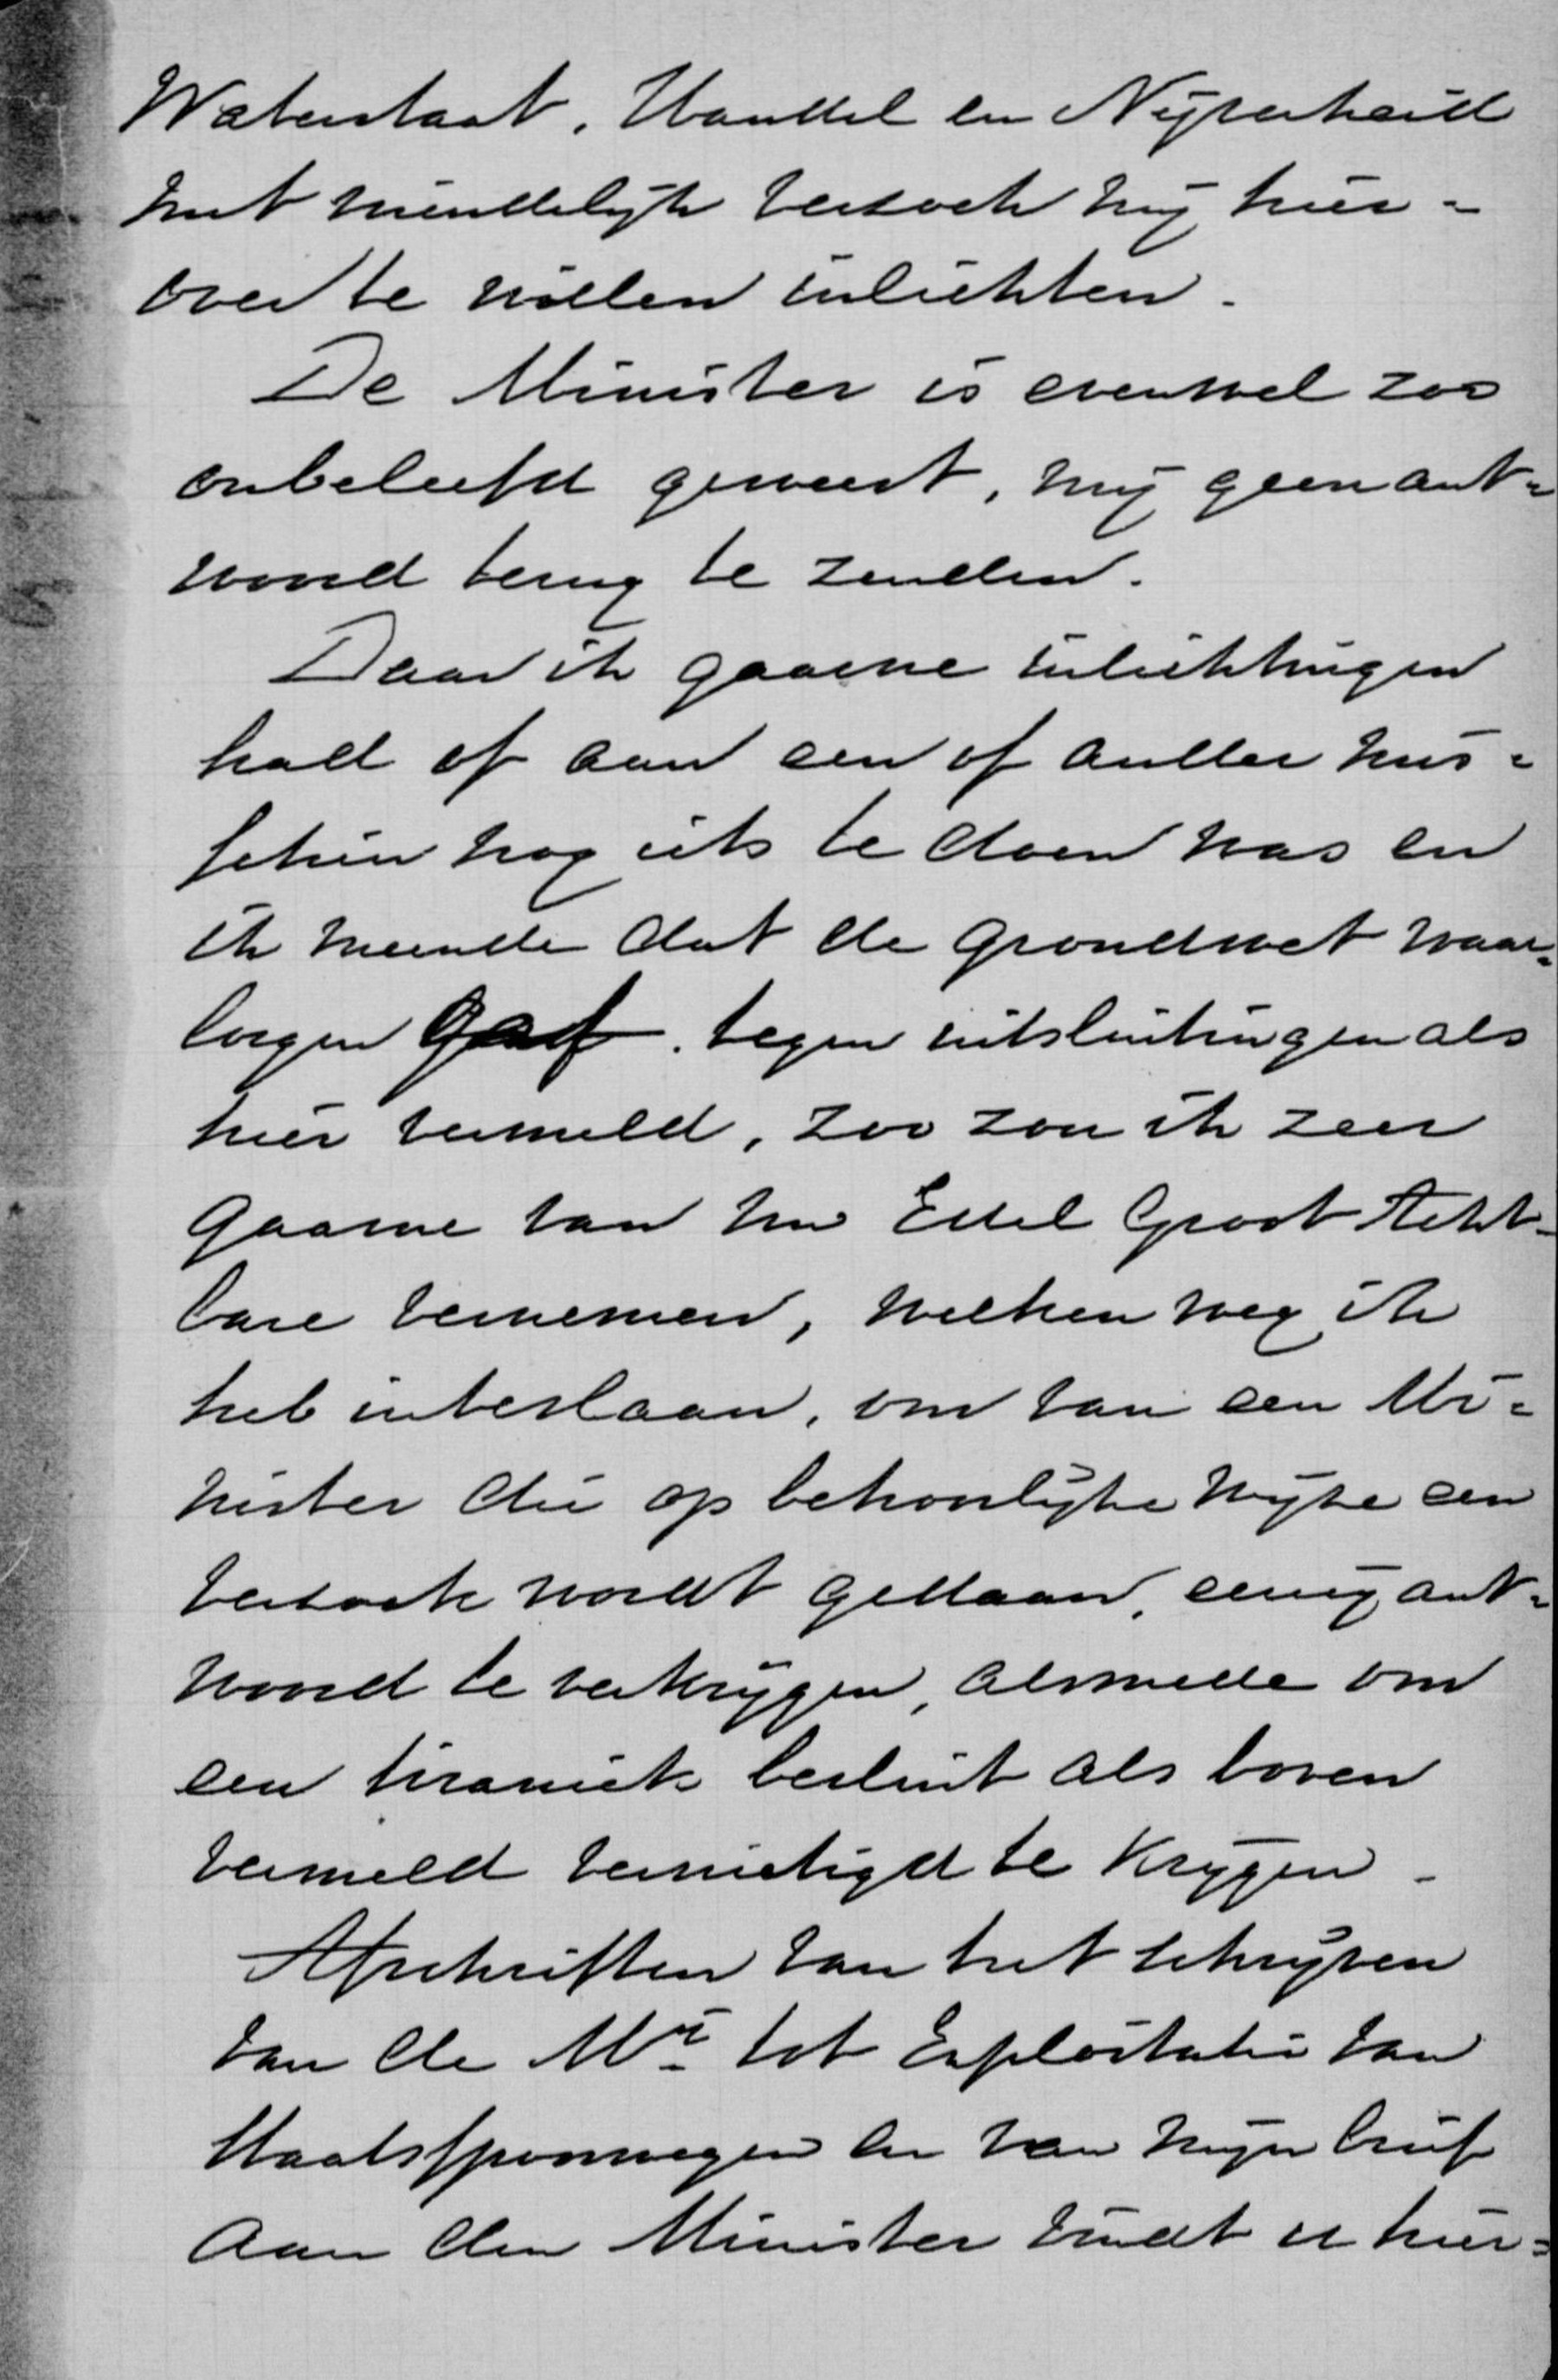 Waterstaat, Handel en Nijverheid
met vriendelijk verzoek mij hier-
over te willen inlichten.
De Minister is evenwel zoo
onbeleefd geweest, mij geen ant-
woord terug te zenden.
Daar ik gaarne inlichtingen
had of aan een of ander mis-
schien nog iets te doen was en
ik meende dat de grondwet waar-
borgen gaf tegen uitsluitingen als
hier vermeld, zoo zou ik zeer
gaarne van Uw Edel Groot Acht-
bare vernemen, welken weg ik
heb inteslaan, om van een Mi-
nister die op behoorlijke wijze een
verzoek wordt gedaan, eenig ant-
woord te verkrijgen, alsmede om
een tiraniek besluit als boven
vermeld vernietigd te krijgen.
Afschriften van het schrijven
van de Mij tot Exploitatie van
Staatsspoorwegen en van mijn brief
aan den Minister vindt u hier-